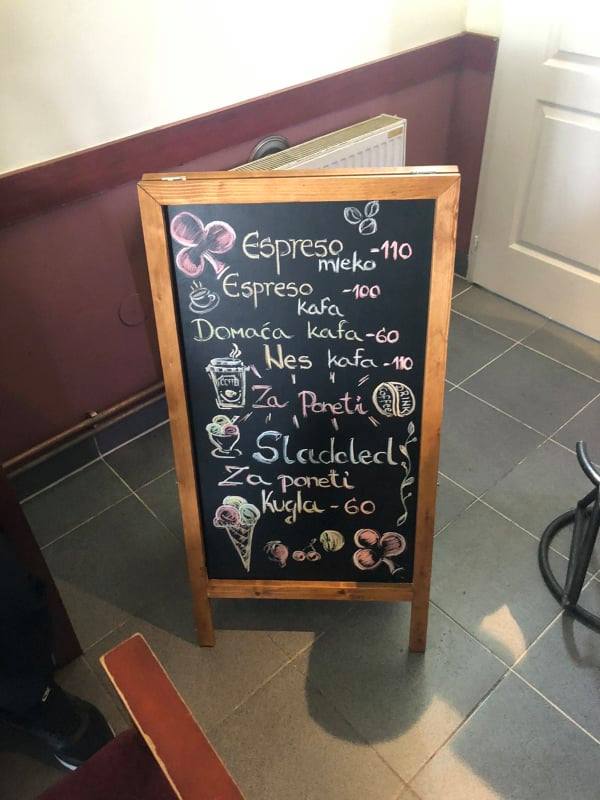 Espreso
mleko -110
Espreso
kafa -100
Domaća kafa -60
Nes kafa -110
Za Poneti
DRINK
Coffee
Sladoled
Za poneti
Kugla - 60